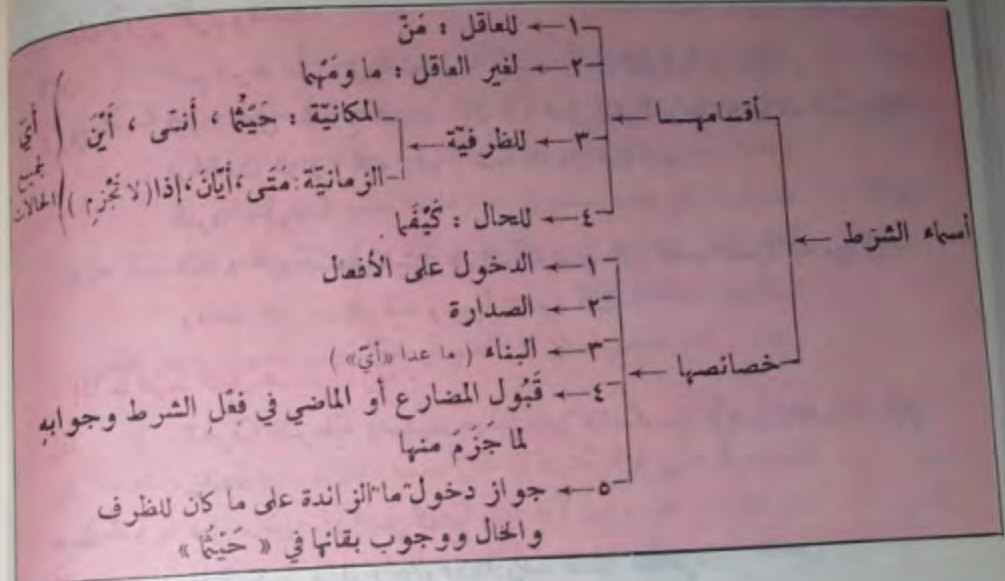 أسماء الشرط ←
أقسامهـا ←
١ ← للعاقل : مَنْ
٢ ← لغير العاقل : ما ومَهْما
٣ ← للظرفيّة ←
المكانيّة : حَيْثُما ، أنّى ، أَيْنَ
الزمانيّة : مَتَى ، أيّانَ ، إذا ( لا تَجْزِم )
أيّ
لجميع
الحالات
٤ ← للحال : كَيْفَما
خصائصها ←
١ ← الدخول على الأفعال
٢ ← الصدارة
٣ ← البناء ( ما عدا «أيّ» )
٤ ← قَبُول المضارع أو الماضي في فِعْلِ الشرط وجوابهِ
لما جَزَمَ منها
٥ ← جواز دخول "ما" الزائدة على ما كان للظرف
والحال ووجوب بقائها في « حَيْثُما »